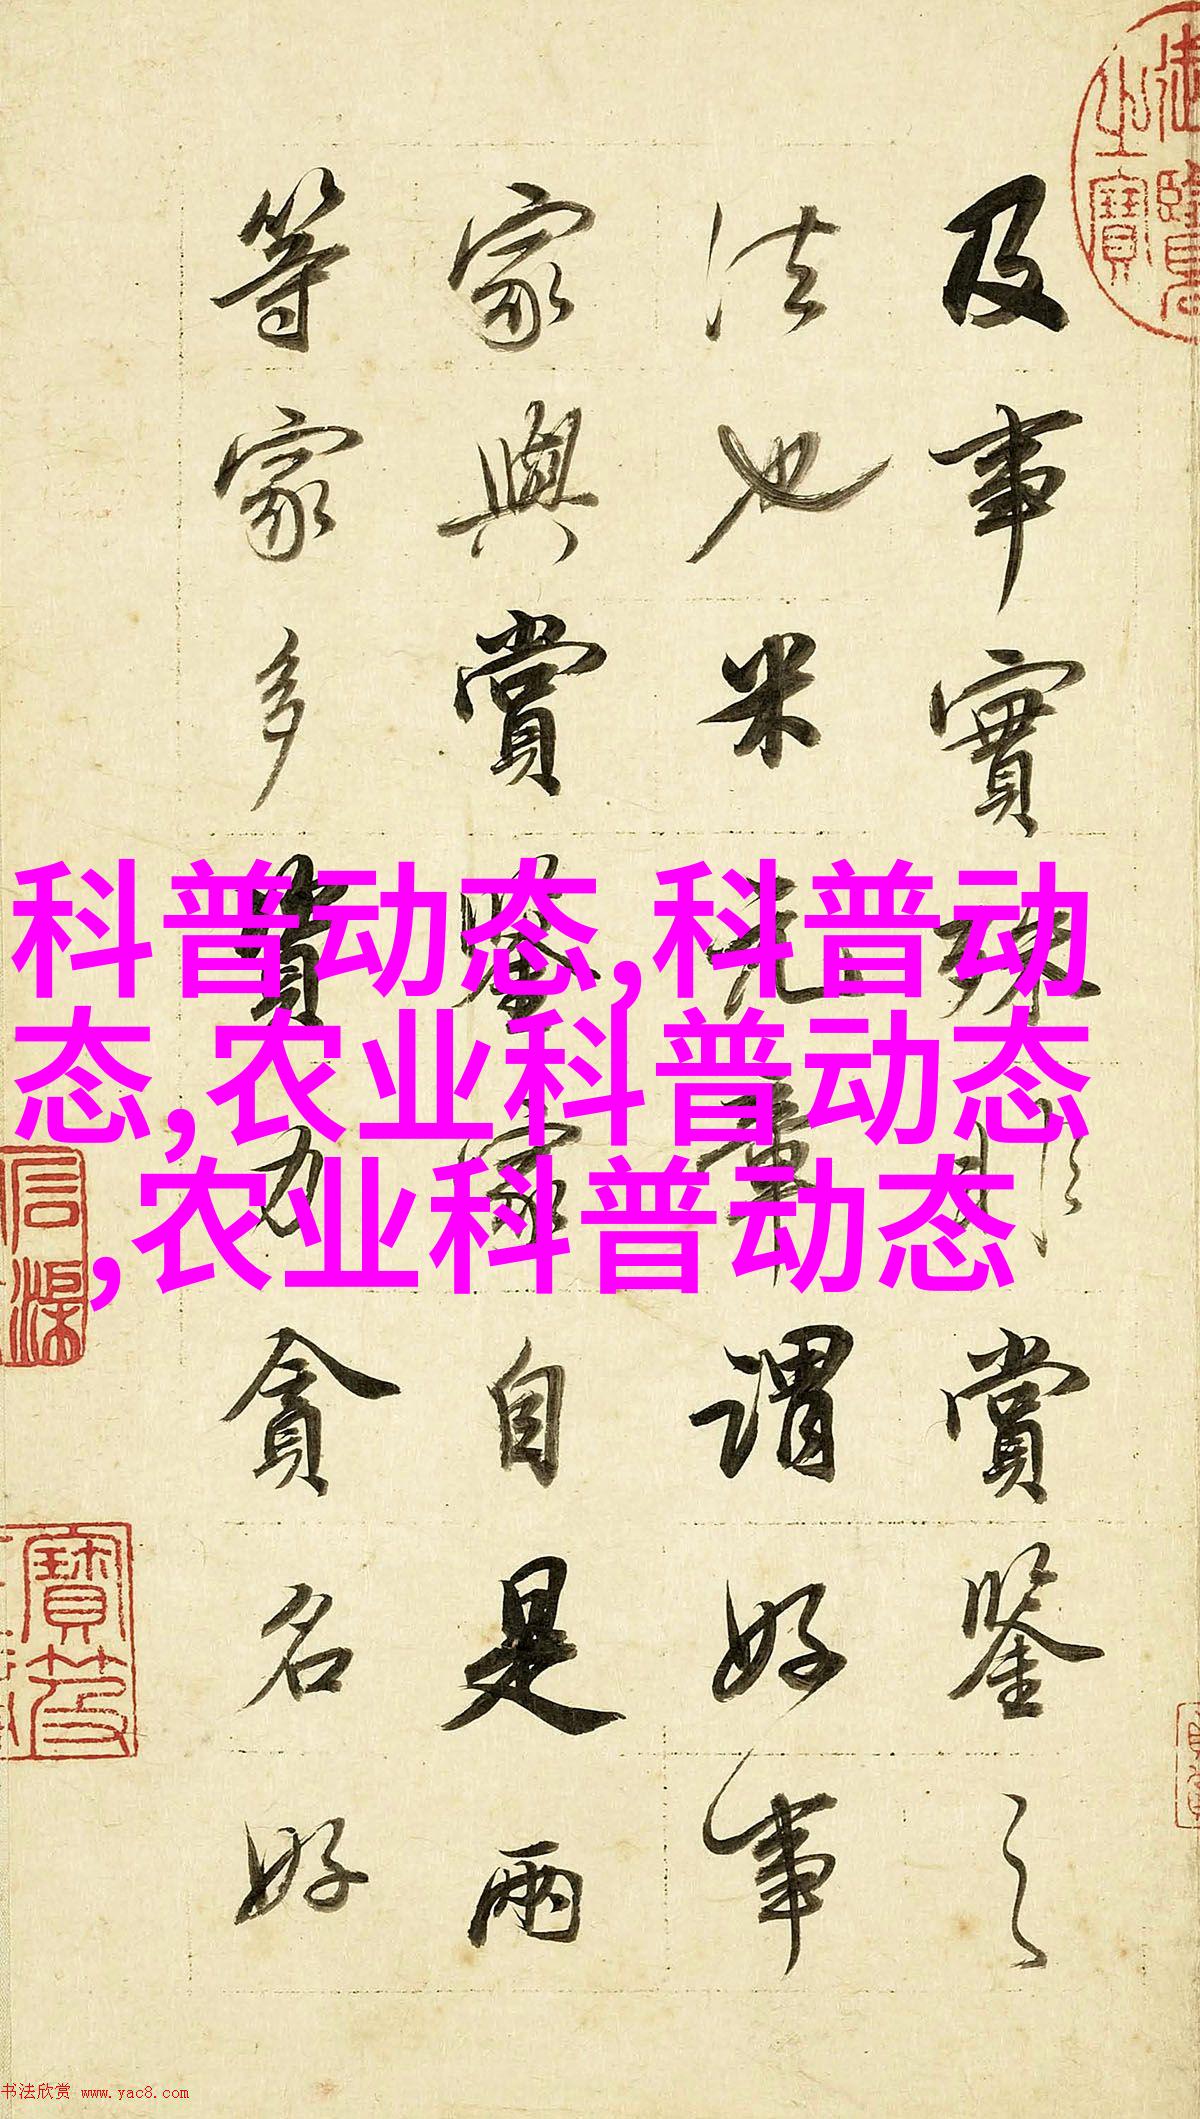 及事實殊賞鑒之
法也米元章謂好事
家與賞鑒家自是兩
等家多資力貪名好
科普动态,科普动
态,农业科普动态
,农业科普动态
书法欣赏 www.yac8.com